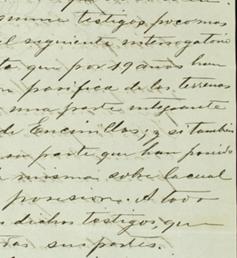 testigos, pocos mas
el siguiente interrogatorio
ta que por 19 años han
n pacifica de los terrenos
una parte integrante
de Encinillas; y si tambien
su parte que han poseido
misma sobre la cual
posesions. A todo
s dichos testigos que
das sus partes.